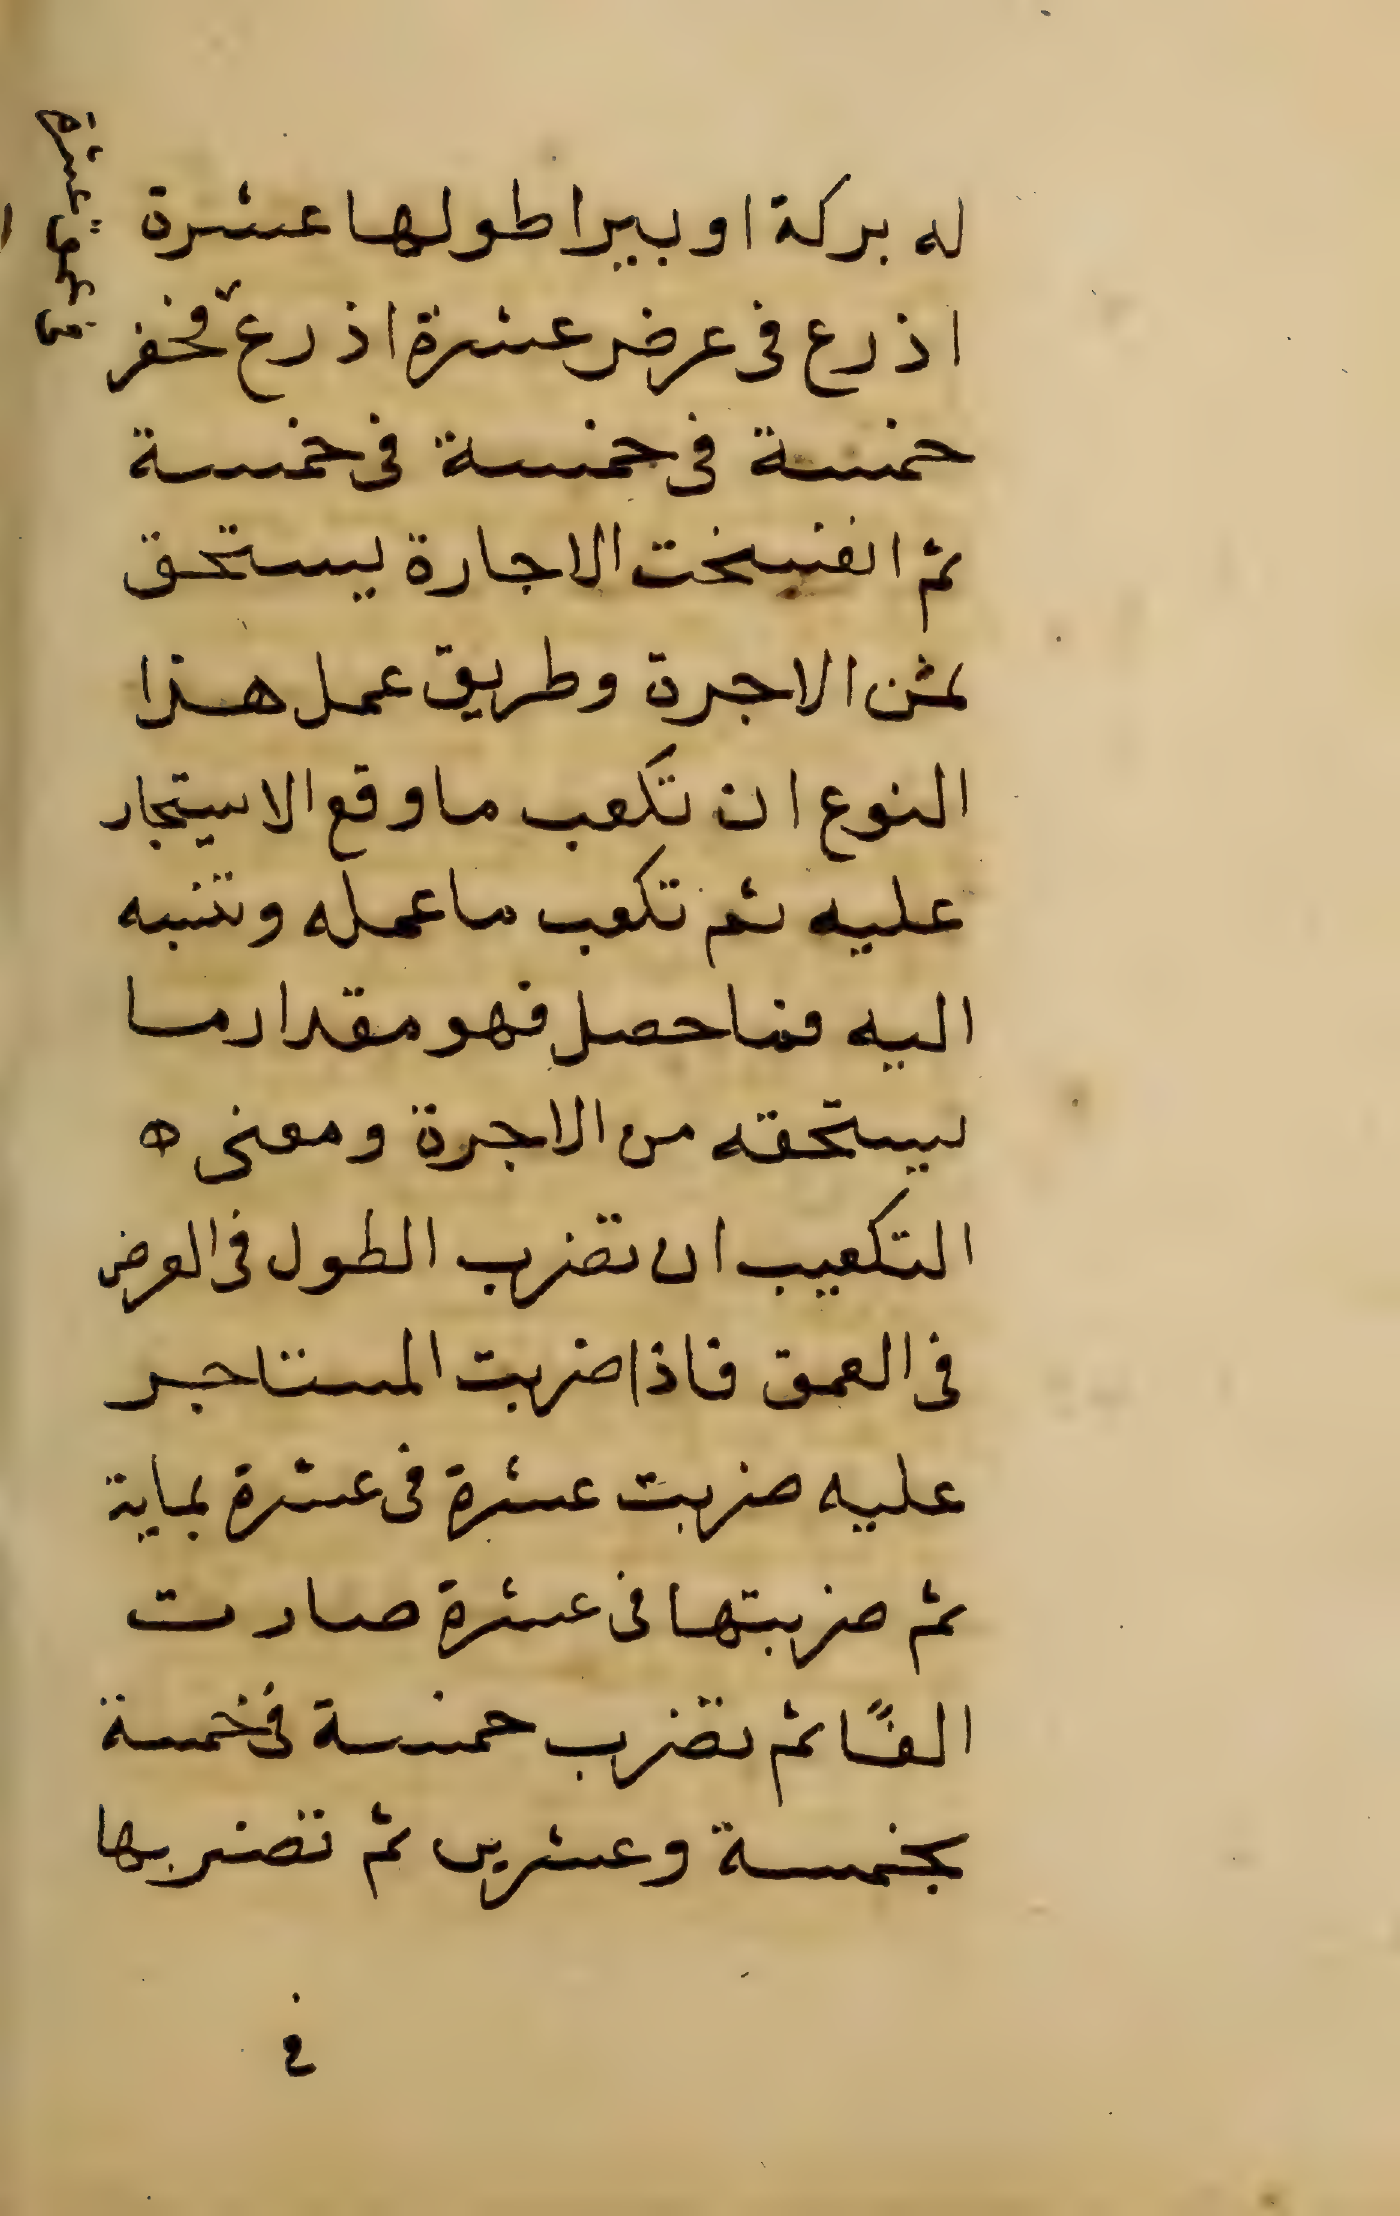 له بركة او بيرا طولها عشرة
اذرع في عرض عشرة اذرع فحفر
في عمق عشرة
خمسة في خمسة في خمسة
ثم انفسخت الاجارة يستحق
ثمن الاجرة وطريق عمل هذا
النوع ان تكعب ما وقع الاستيجار
عليه ثم تكعب ما عمله وتنسبه
اليه فما حصل فهو مقدار ما
يستحقه من الاجرة ومعنى ه
التكعيب ان تضرب الطول في العرض
في العمق فاذا ضربت المستاجر
عليه ضربت عشرة في عشرة بماية
ثم ضربتها في عشرة صارت
الفًا ثم تضرب خمسة في خمسة
بخمسة وعشرين ثم تضربها
في